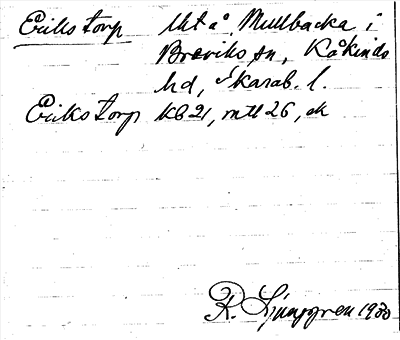 Erikstorp Utå Mullbacka i
Breviks sn, Kåkinds
hd, Skarab. l.
Erikstorp KB 21, mtl 26, ek
R. Ljunggren 1930